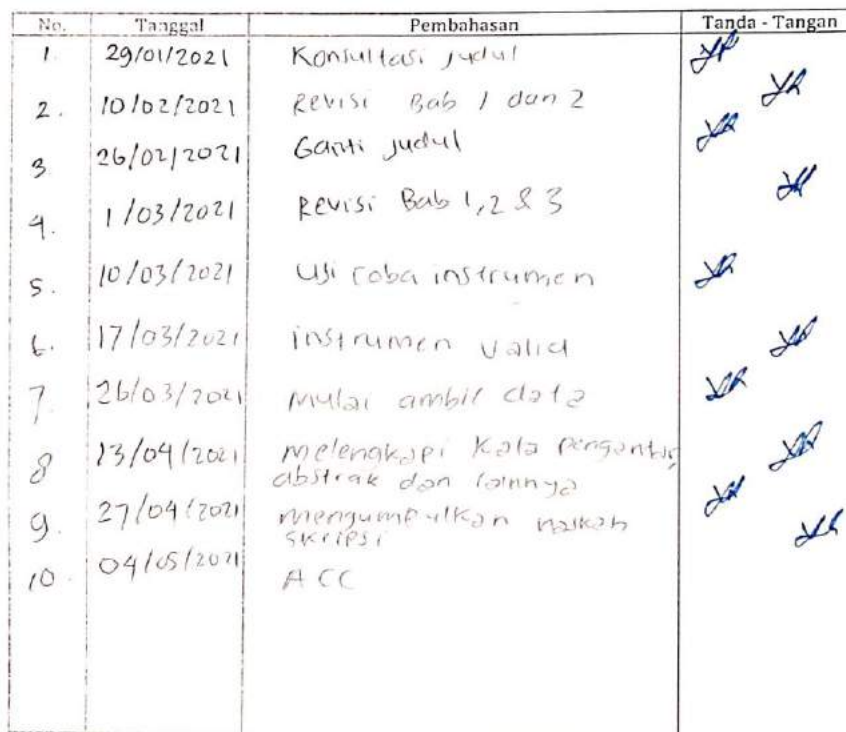 No. Tanggal Pembahasan Tanda - Tangan
1. 29/01/2021 Konsultasi judul
2. 10/02/2021 Revisi Bab 1 dan 2
3 26/02/2021 Ganti judul
4. 1/03/2021 Revisi Bab 1, 2 & 3
5. 10/03/2021 Uji coba instrumen
6. 17/03/2021 instrumen valid
7. 26/03/2021 Mulai ambil data
8 13/04/2021 melengkapi Kata pengantar,
abstrak dan lainnya
9. 27/04/2021 mengumpulkan naskah
skripsi
10. 04/05/2021 ACC